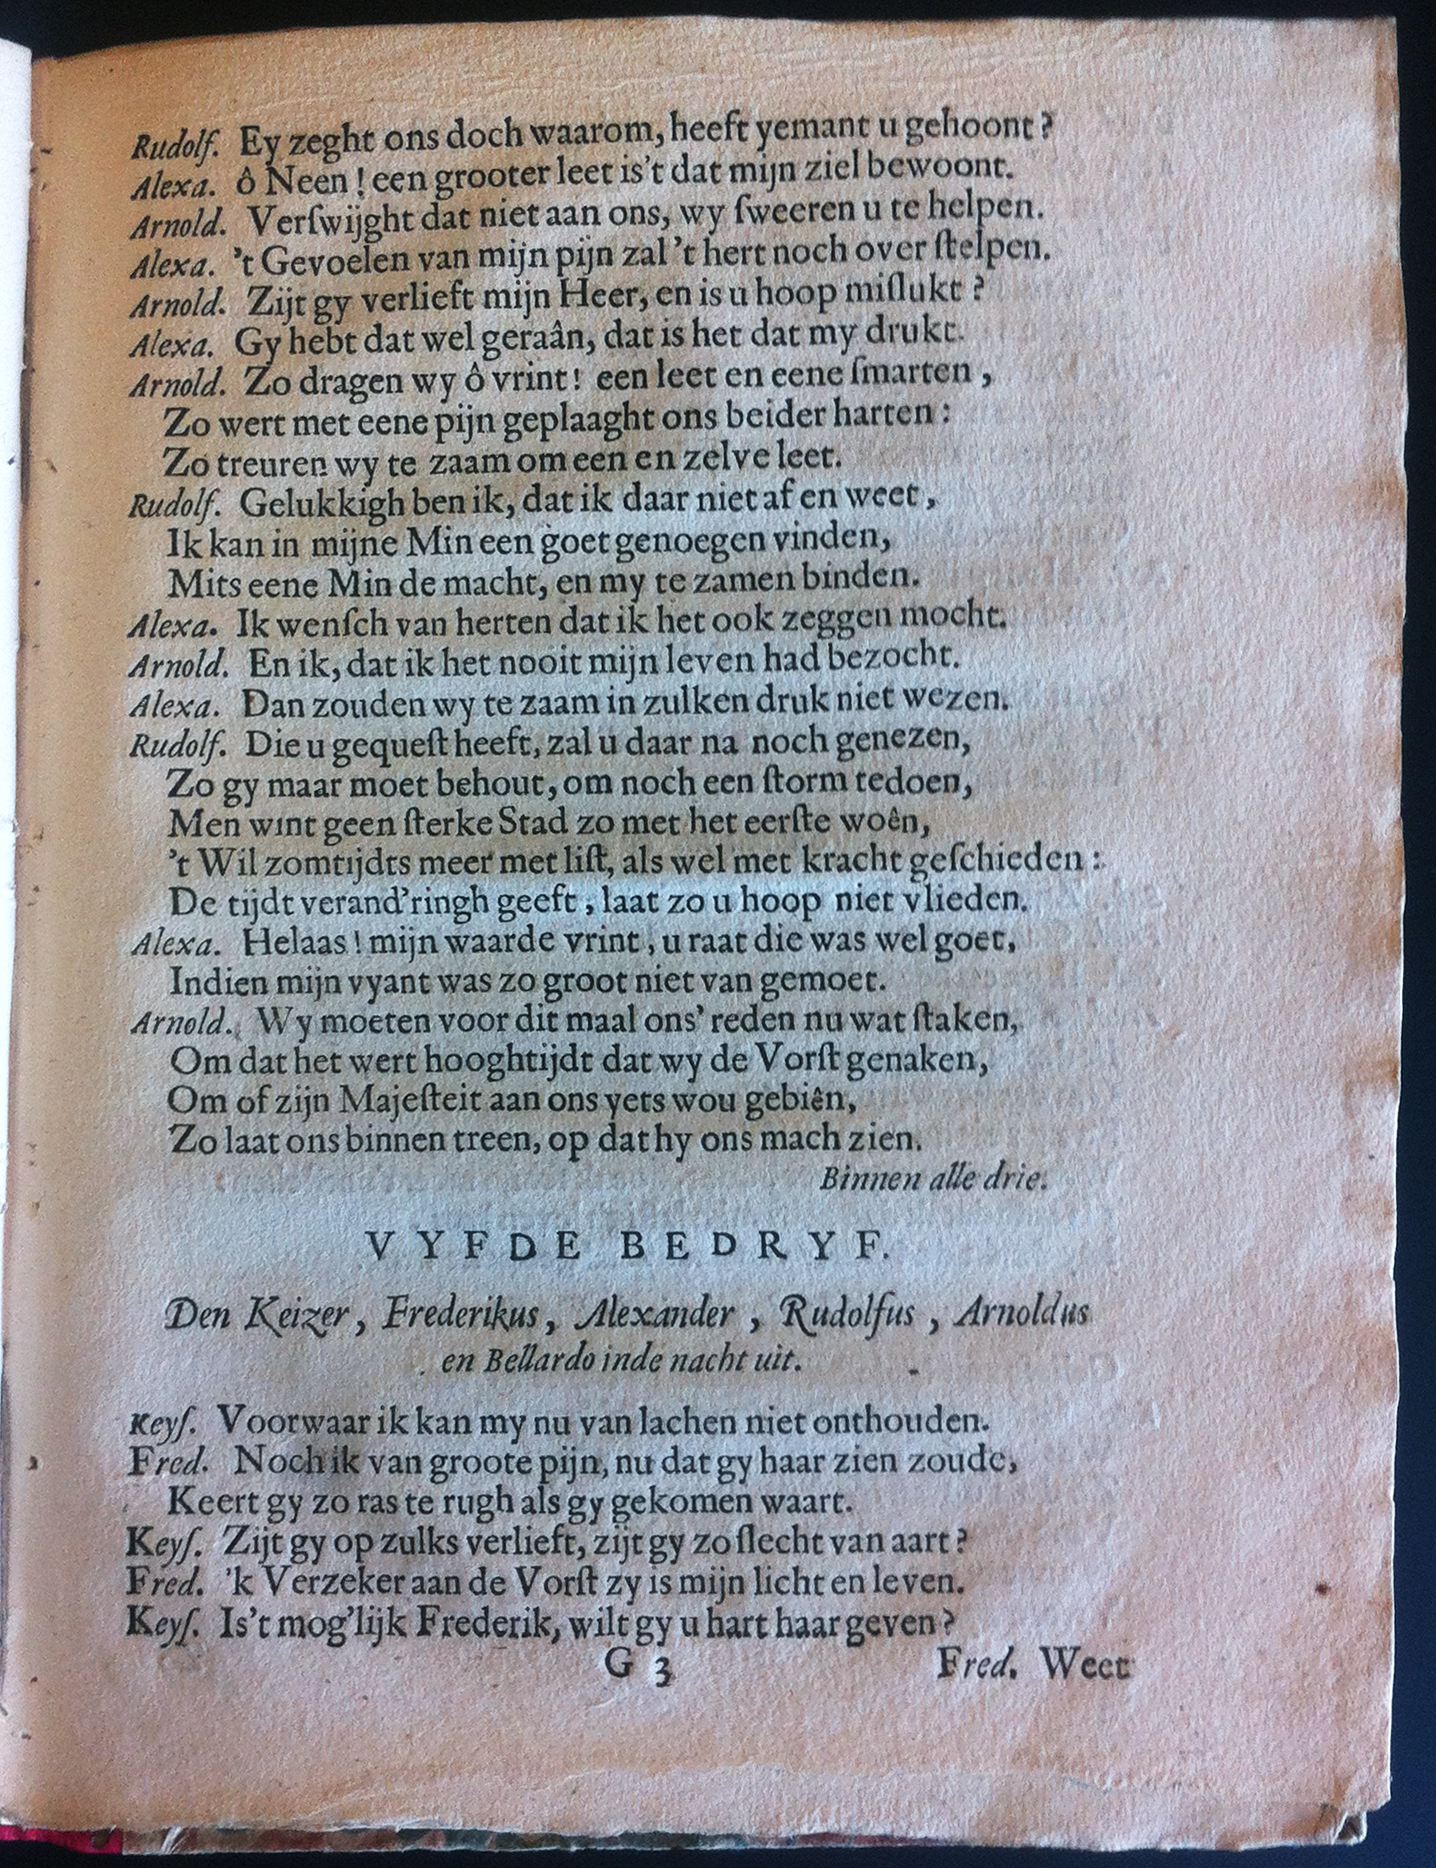 Rudolf. Ey zeght ons doch waarom, heeft yemant u gehoont?
Alexa. ô Neen! een grooter leet is't dat mijn ziel bewoont.
Arnold. Verſwijght dat niet aan ons, wy ſweeren u te helpen.
Alexa. 't Gevoelen van mijn pijn zal 't hert noch over ſtelpen.
Arnold. Zijt gy verlieft mijn Heer, en is u hoop miſlukt?
Alexa. Gy hebt dat wel geraân, dat is het dat my drukt.
Arnold. Zo dragen wy ô vrint! een leet en eene ſmarten,
Zo wert met eene pijn geplaaght ons beider harten:
Zo treuren wy te zaam om een en zelve leet.
Rudolf. Gelukkigh ben ik, dat ik daar niet af en weet,
Ik kan in mijne Min een goet genoegen vinden,
Mits eene Min de macht, en my te zamen binden.
Alexa. Ik wenſch van herten dat ik het ook zeggen mocht.
Arnold. En ik, dat ik het nooit mijn leven had bezocht.
Alexa. Dan zouden wy te zaam in zulken druk niet wezen.
Rudolf. Die u gequeſt heeft, zal u daar na noch genezen,
Zo gy maar moet behout, om noch een ſtorm tedoen,
Men wint geen ſterke Stad zo met het eerſte woên,
't Wil zomtijdts meer met liſt, als wel met kracht geſchieden:
De tijdt verand'ringh geeft, laat zo u hoop niet vlieden.
Alexa. Helaas! mijn waarde vrint, u raat die was wel goet,
Indien mijn vyant was zo groot niet van gemoet.
Arnold. Wy moeten voor dit maal ons' reden nu wat ſtaken,
Om dat het wert hooghtijdt dat wy de Vorſt genaken,
Om of zijn Majeſteit aan ons yets wou gebiên,
Zo laat ons binnen treen, op dat hy ons mach zien.
Binnen alle drie.
VYFDE BEDRYF.
Den Keizer, Frederikus, Alexander, Rudolfus, Arnoldus
en Bellardo inde nacht uit.
Keyſ. Voorwaar ik kan my nu van lachen niet onthouden.
Fred. Noch ik van groote pijn, nu dat gy haar zien zoude,
Keert gy zo ras te rugh als gy gekomen waart.
Keyſ. Zijt gy op zulks verlieft, zijt gy zo ſlecht van aart?
Fred. 'k Verzeker aan de Vorſt zy is mijn licht en leven.
Keyſ. Is't mog'lijk Frederik, wilt gy u hart haar geven?
G 3 Fred. Weet